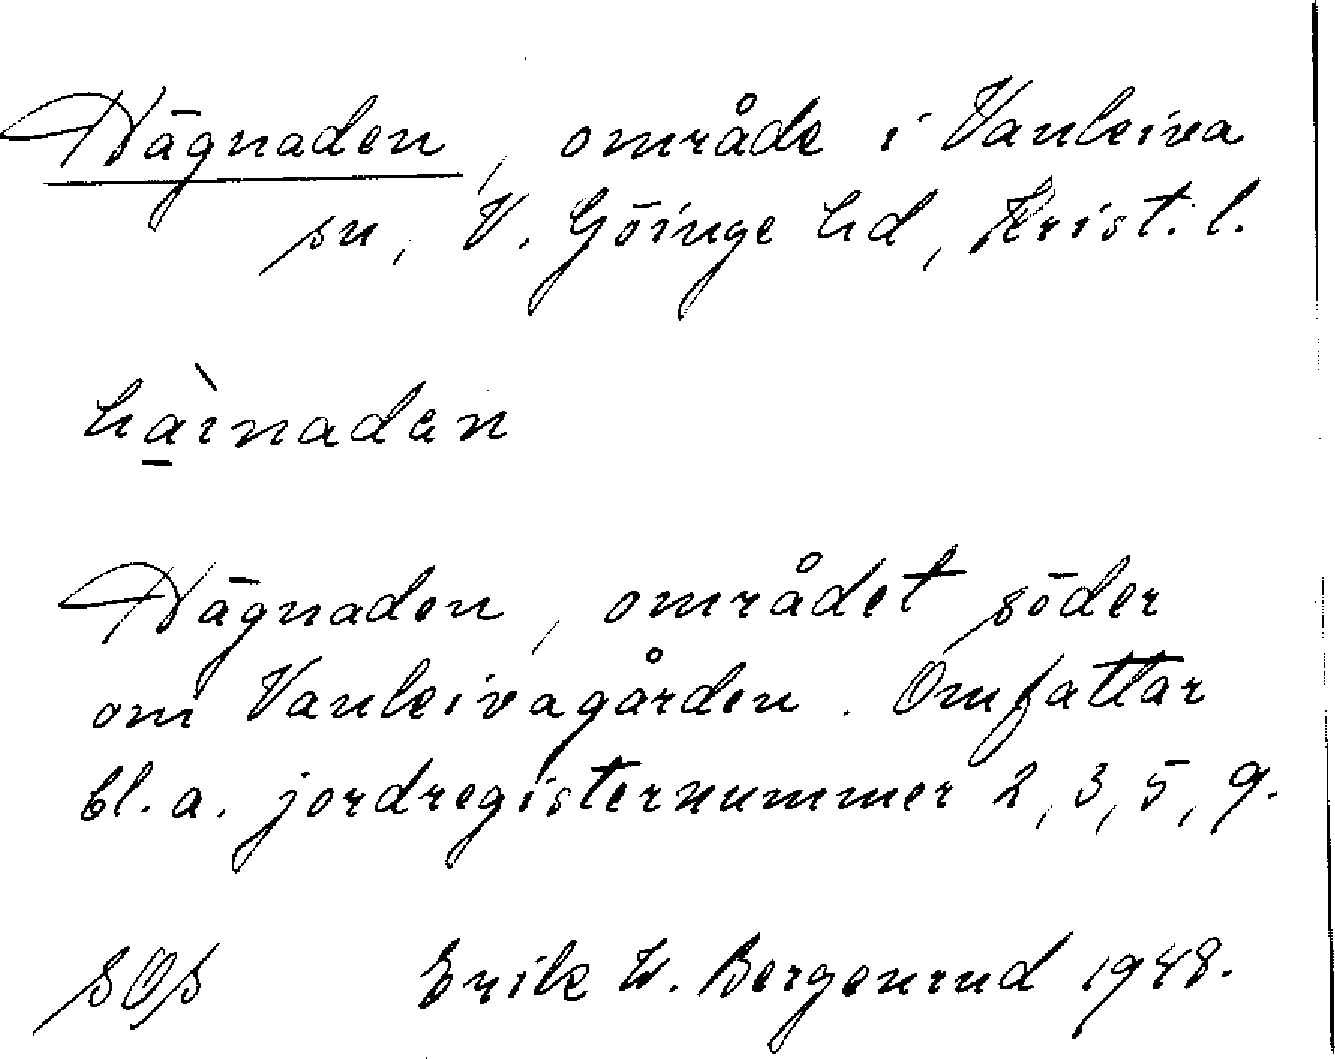 Hägnaden, område i Vankiva
sn, V. Göinge hd, Krist. l.
hàinadan
Hägnaden, området söder
om Vankivagården. Omfattar
bl. a. jordregisternummer 2, 3, 5, 9.
SOS Erik W. Bergenrud 1948.